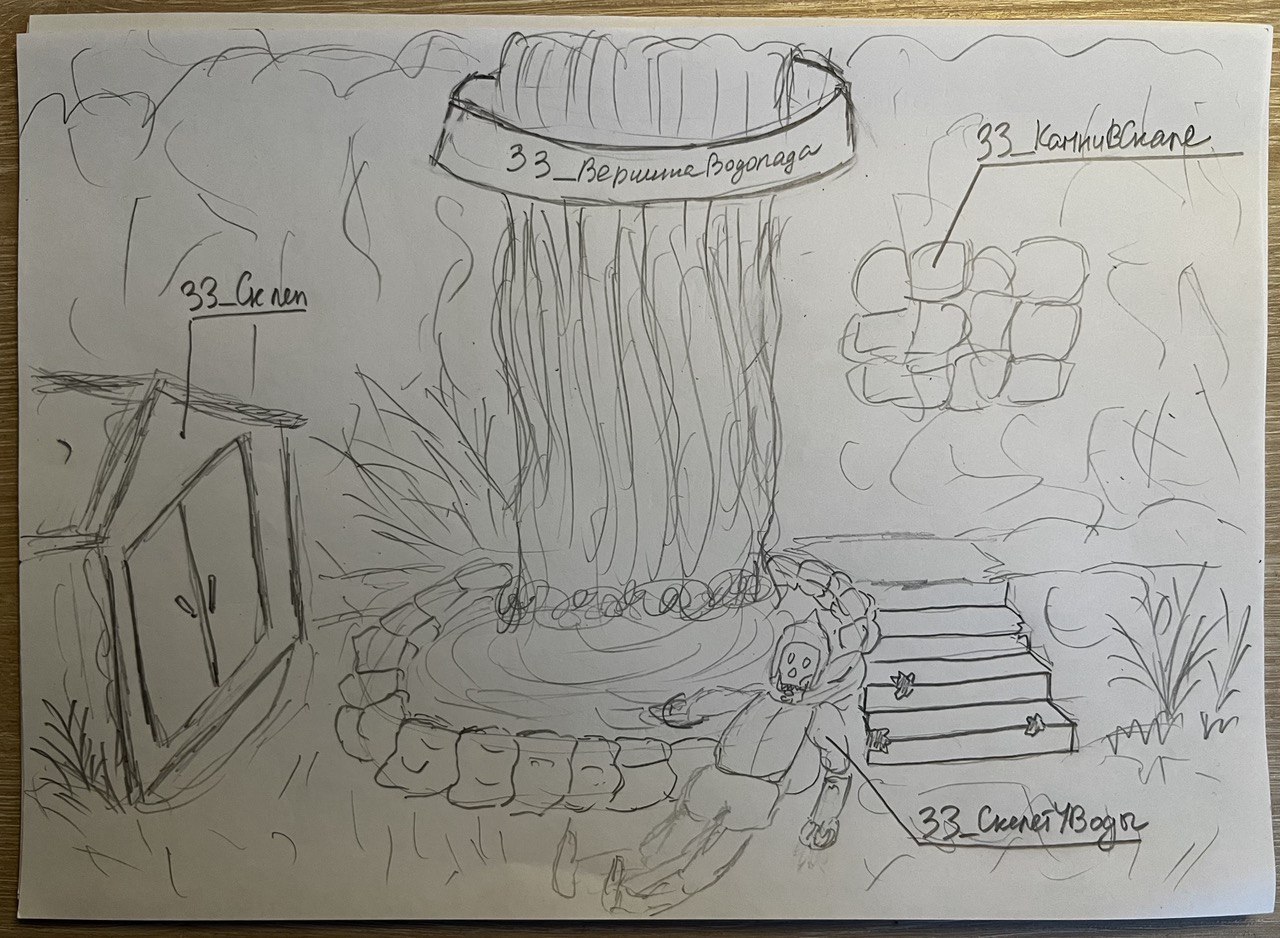 33_ВершинаВодопада
33_КамниВСкале
33_Склеп
33_СкелетУВоды